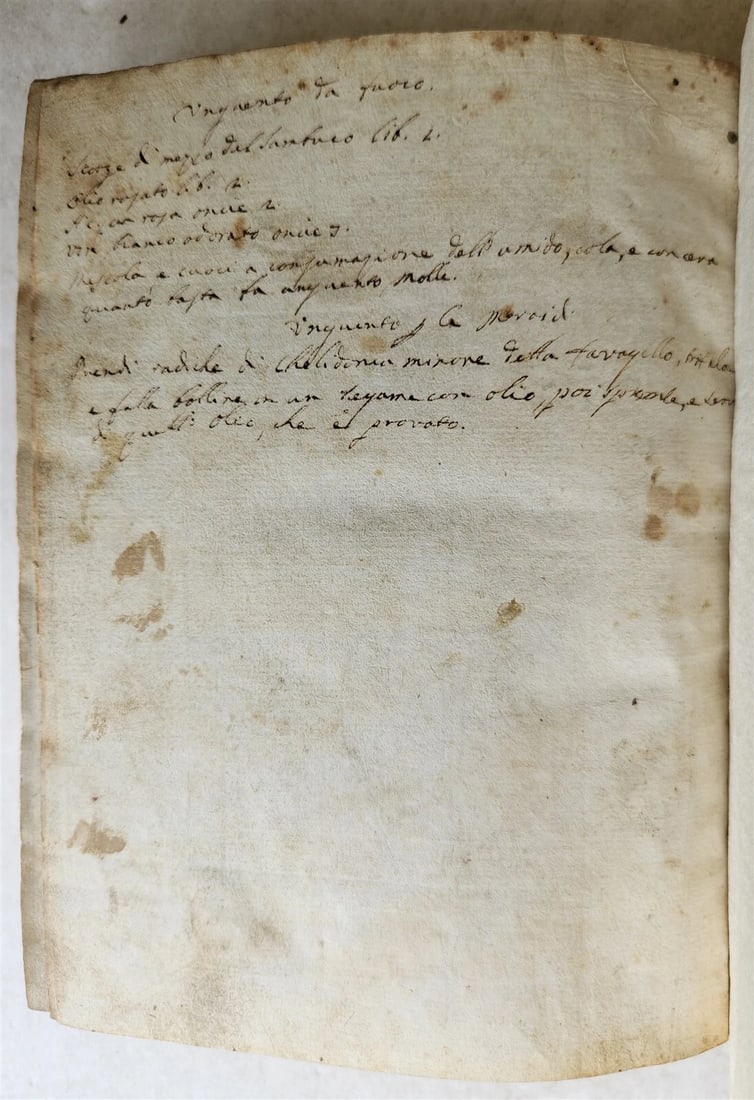 Unguento da fuoco.
Scorze di mezzo dal Sambuco lib. 1.
Olio rosato lib. 2.
Acqua rosa oncie 2.
Vin bianco odorato oncie 3.
Mescola e cuoci a consumazione dell'umido, cola, e con cera
quanto basta fa unguento molle.
Unguento p le moroidi
Prendi radiche di Chelidonia minore detta favagello,
e falla bollire in un tegame con olio, poi spremile, e
di quell'olio, che è provato.